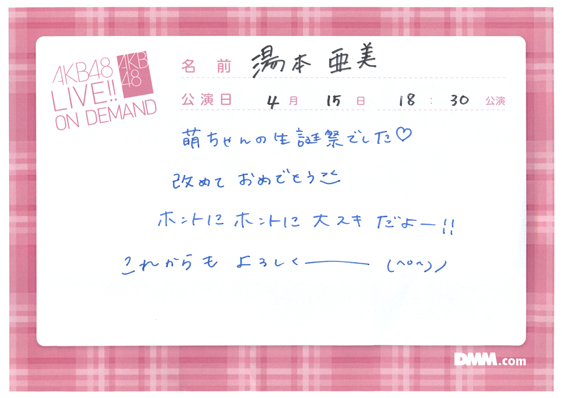 AKB48
LIVE!!
ON DEMAND
AKB
48
名前 湯本亜美
公演日 4月 15日 18:30 公演
萌ちゃんの生誕祭でした♡
改めて おめでとう
ホントに ホントに 大スキ だよー!!
これからも よろしく――― (^o^)ノ
DMM.com